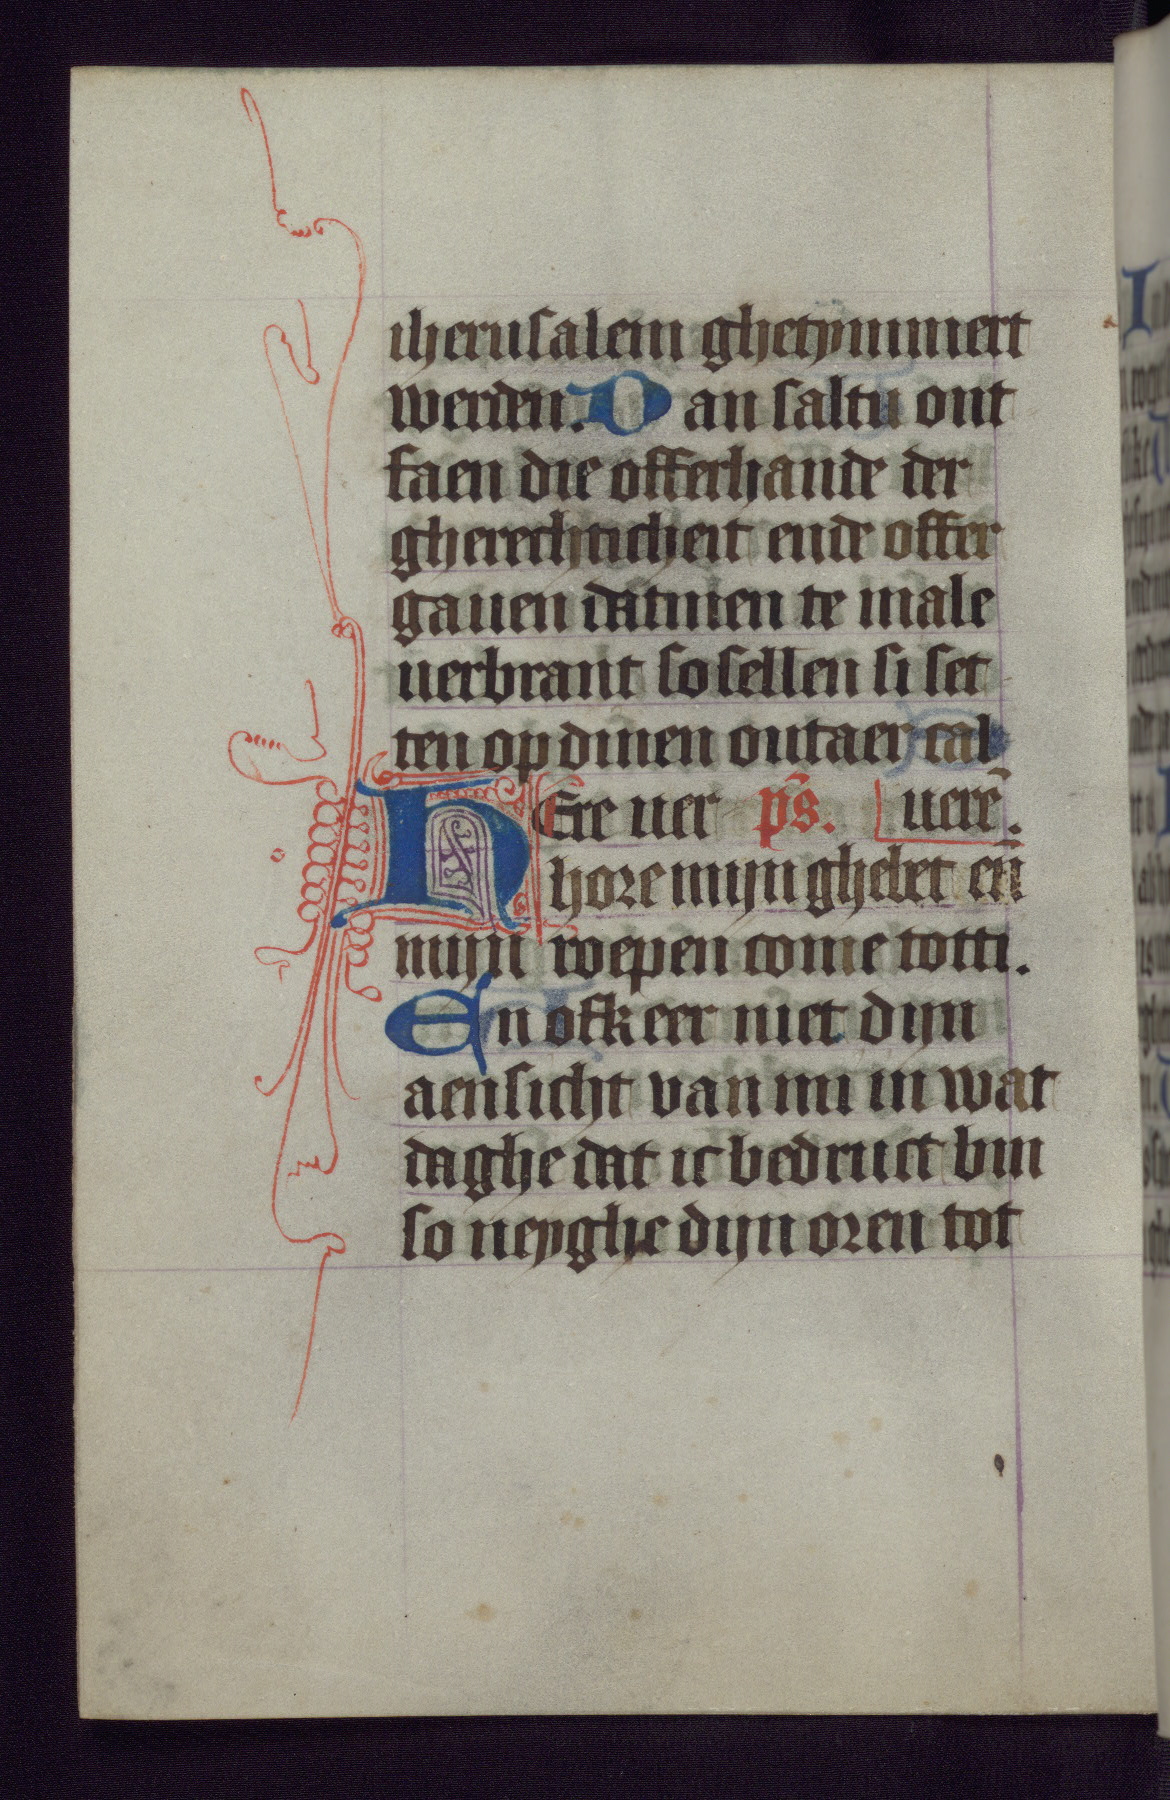 iherusalem ghetymmert
werden. Dan saltu ont
faen die offerhande der
gherechticheit ende offer
gauen datmen te male
uerbrant so sellen si set
ten op dinen outaer cal
HEre uer ps̄. uerē.
hore mijn ghebet en̄
mijn roepen come totti.
En ofkeer niet dijn
aensicht van mi in wat
daghe dat ic bedruct bin
so neyghe dijn oren tot